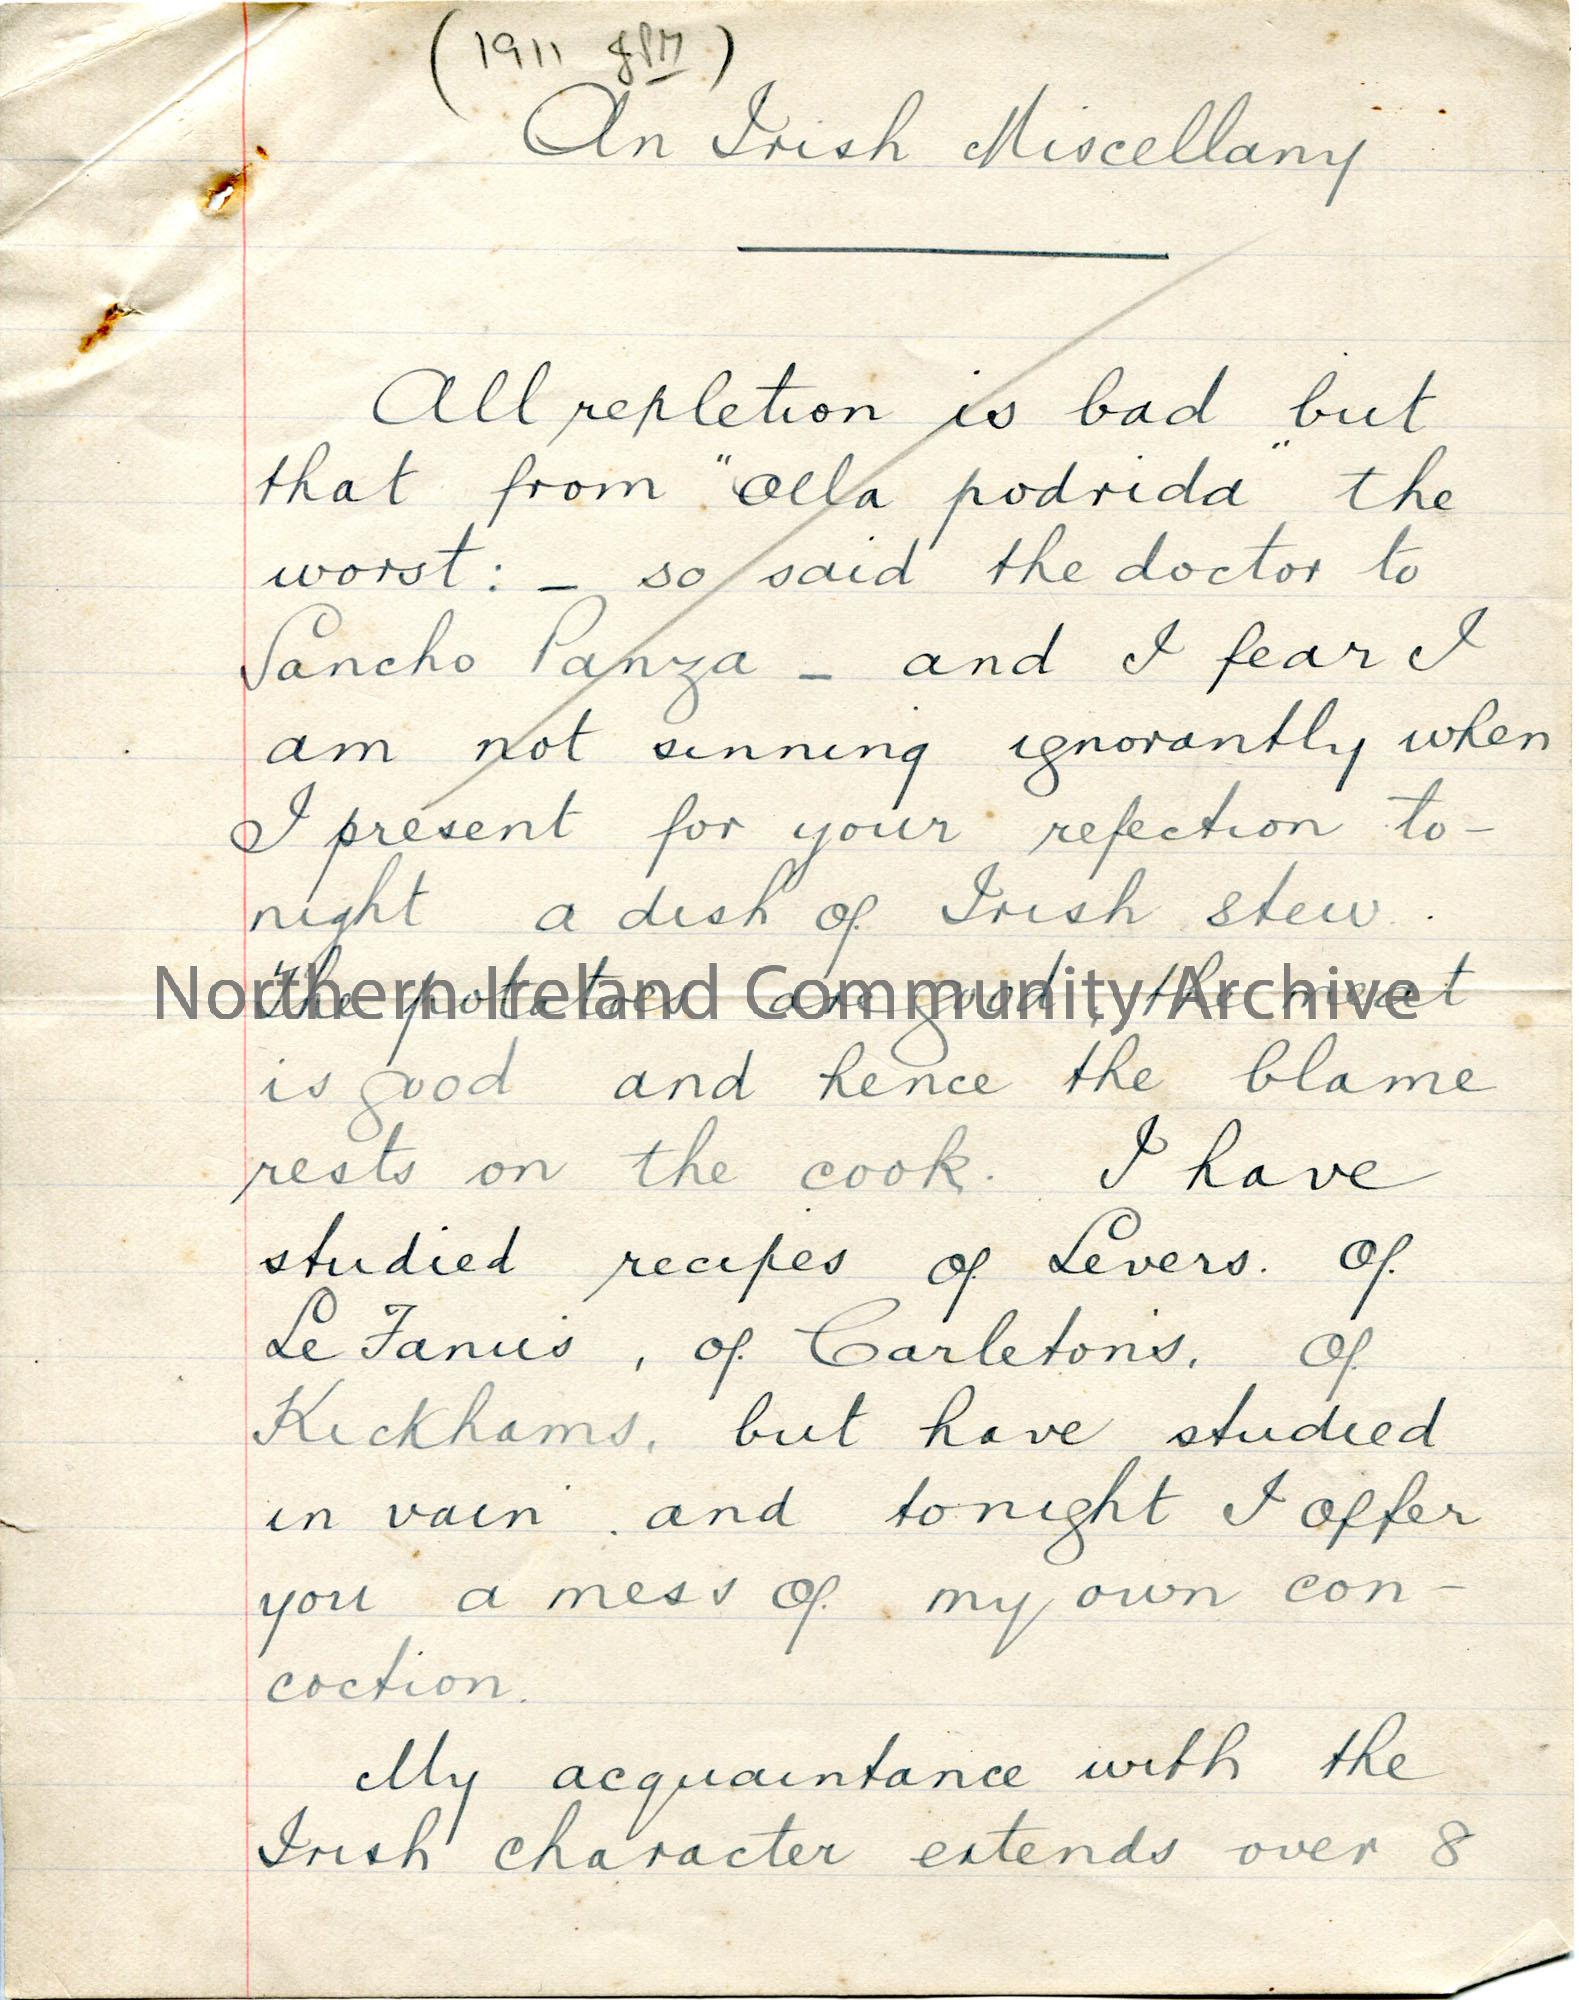 (1911 JPM)
An Irish Miscellany
All repletion is bad but
that from "olla podrida" the
worst: — so said the doctor to
Sancho Panza — and I fear I
am not sinning ignorantly when
I present for your refection to-
night a dish of Irish stew.
The potatoes are good, the meat
is good and hence the blame
rests on the cook. I have
studied recipes of Levers. of
Le Fanu's, of Carleton's, of
Kickhams, but have studied
in vain. and tonight I offer
you a mess of my own con-
coction.
My acquaintance with the
Irish character extends over 8
Northern Ireland Community Archive